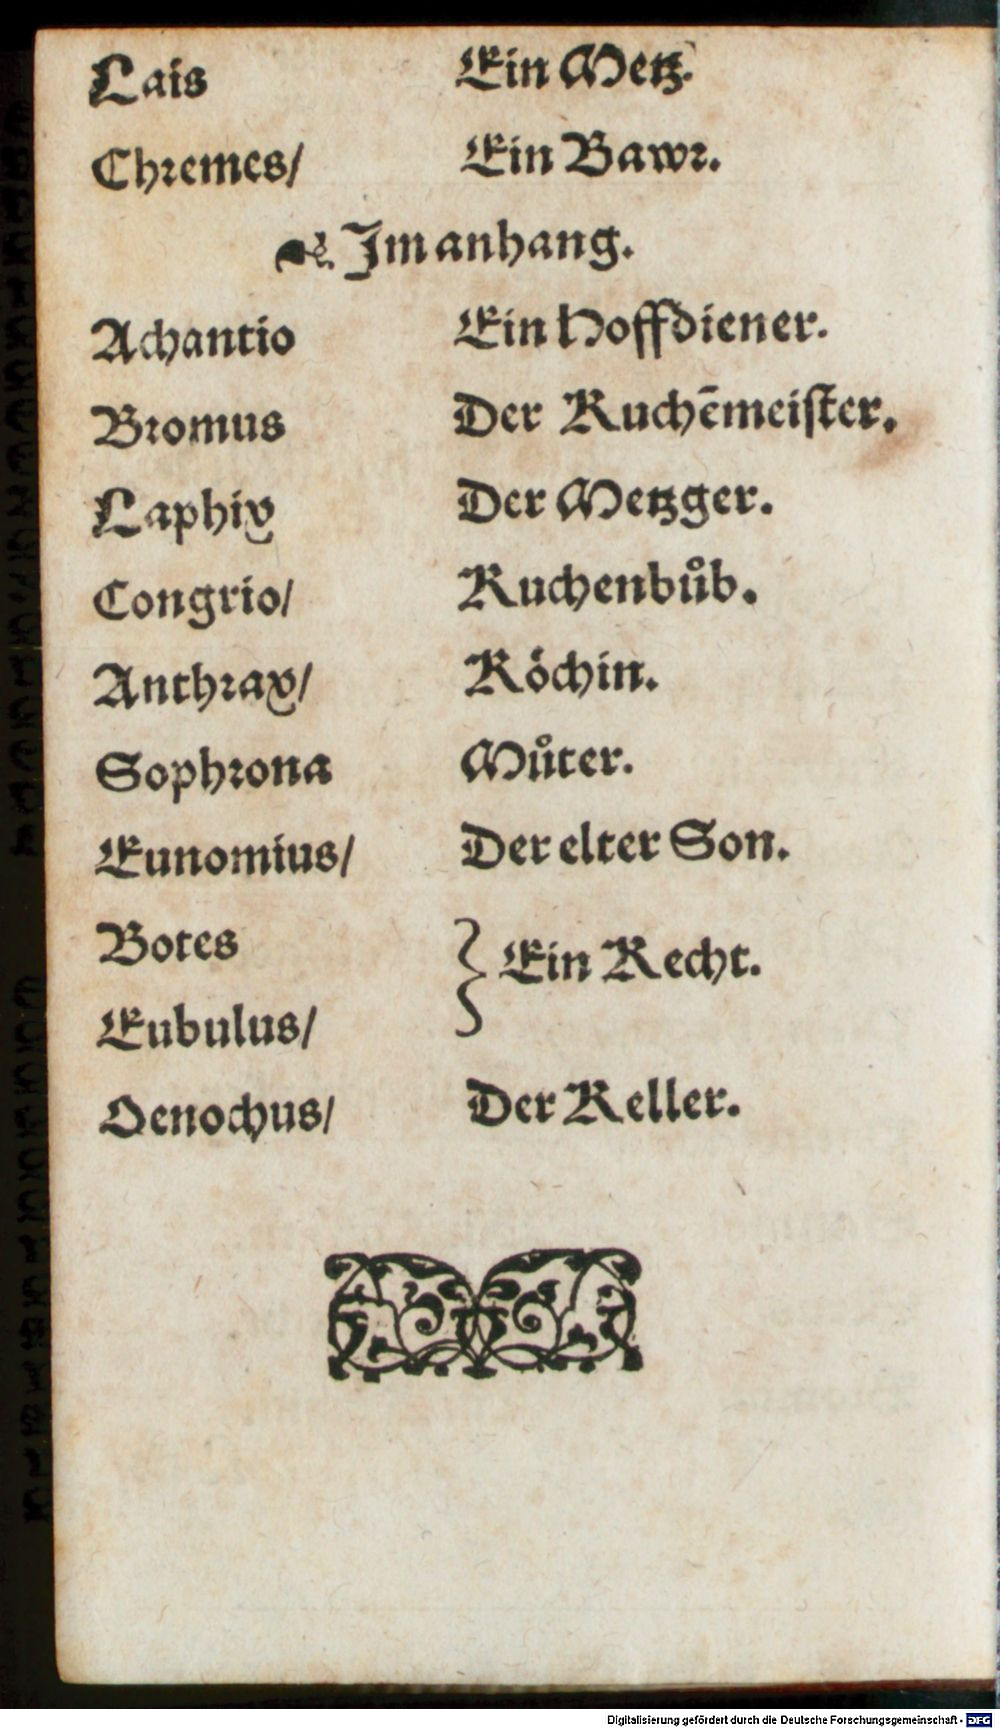 Lais Ein Metz.
Chremes/ Ein Bawr.
❧ Im anhang.
Achantio Ein Hoffdiener.
Bromus Der Kuchēmeister.
Laphix Der Metzger.
Congrio/ Kuchenbůb.
Anthrax/ Köchin.
Sophrona Můter.
Eunomius/ Der elter Son.
Botes
} Ein Kecht.
Eubulus/
Oenochus/ Der Keller.
Digitalisierung gefördert durch die Deutsche Forschungsgemeinschaft - DFG